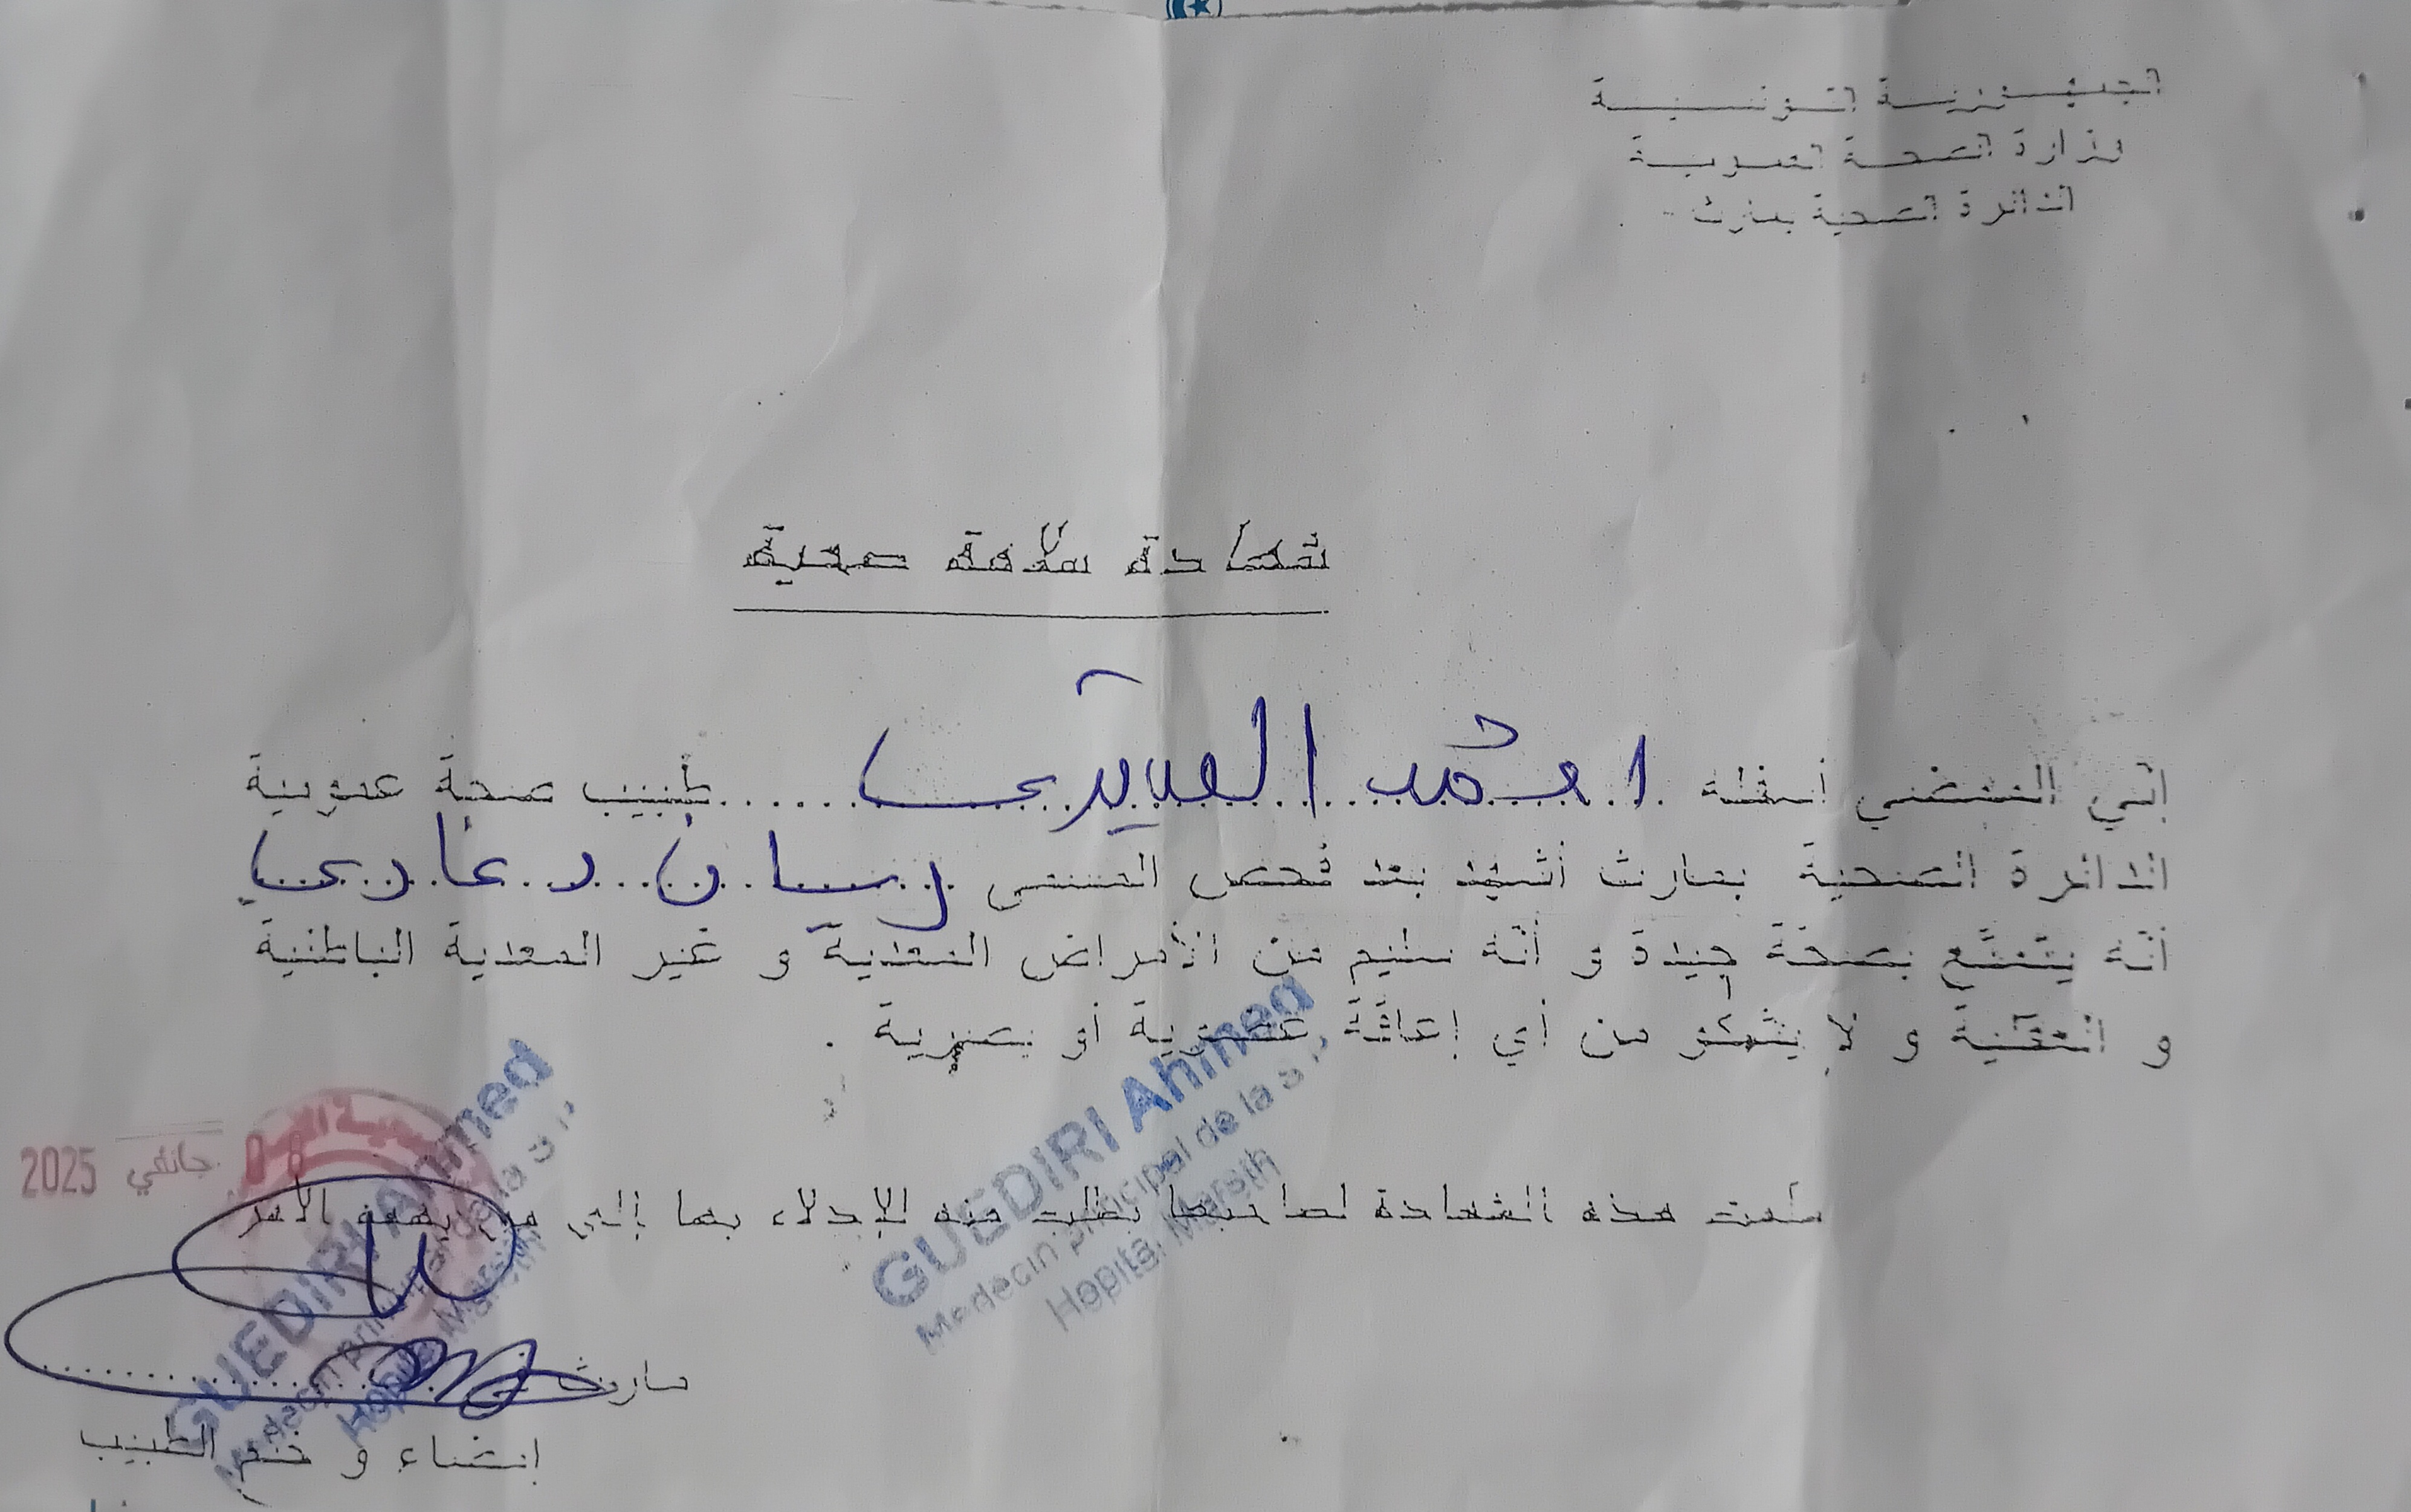 الجمهورية التونسية
وزارة الصحة العمومية
الدائرة الصحية بمارث
شهادة سلامة صحية
إني الممضي أسفله احمد القديري طبيب صحة عمومية
الدائرة الصحية بمارث أشهد بعد فحص المسمى ريان دغاري
أنّه يتمتّع بصحّة جيدة و أنّه سليم من الأمراض المعدية و غير المعدية الباطنية
و العقلية و لا يشكو من أي إعاقة عضوية أو بصرية .
GUEDIRI Ahmed
Medecin principal de la
Hopital Mareth
08 جانفي 2025
سلمت هذه الشهادة لصاحبها بطلب منه للإدلاء بها إلى من يهمه الأمر
GUEDIRI Ahmed
Hopital Mareth
مارث
إمضاء و ختم الطبيب